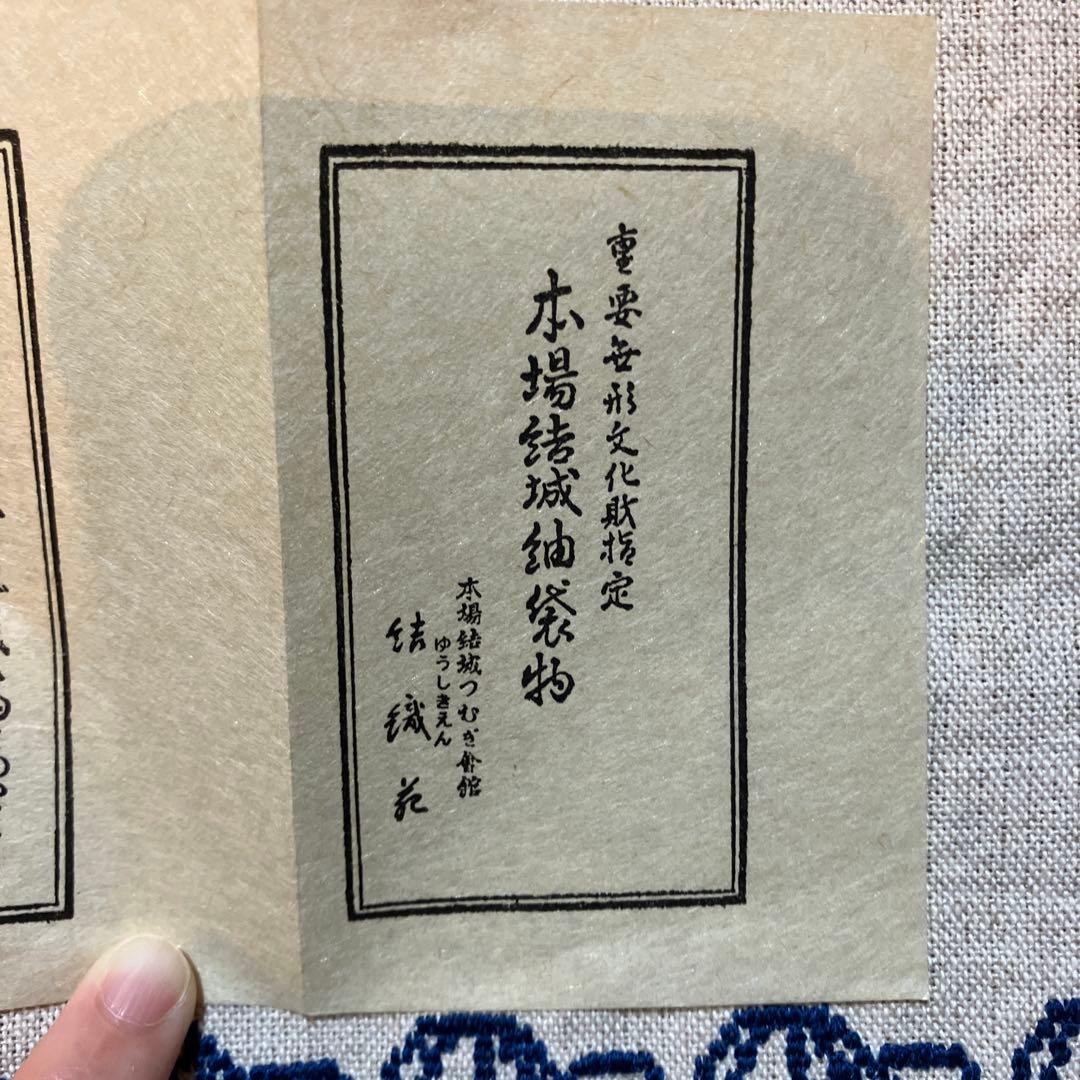 重要無形文化財指定
本場結城紬袋物
本場結城つむぎ会館
ゆうしきえん
結織苑